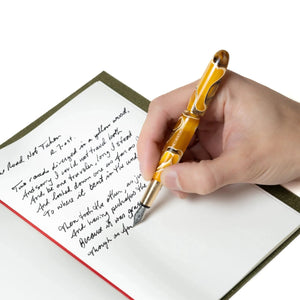 Road Not Taken
R. Frost
Two roads diverged in a yellow wood,
And sorry I could not travel both
And be one traveler, long I stood
And looked down one as far as
To where it bent in the
Then took the other, as
And having perhaps the
Because it was grassy
Though as for